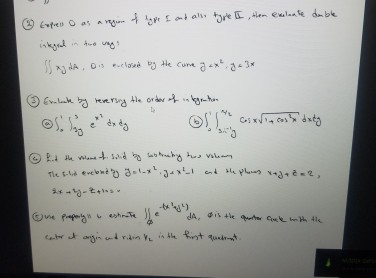 ② Express D as a region of type I and also type II, then evaluate double
integral in two ways
∬ xy dA, D is enclosed by the curve y=x², y=3x
③ Evaluate by reversing the order of integration
ⓐ ∫₀¹ ∫₃ᵧ³ e^(x²) dx dy ⓑ ∫₀¹ ∫_(sin⁻¹y)^(π/2) cos x √(1+cos²x) dx dy
Find the volume of solid by subtracting two volumes
The solid enclosed by y=1-x², y=x²-1 and the planes x+y+z=2,
2x+2y-z+10=0
use property 11 to estimate ∬ e^(-(x²+y²)) dA, D is the quarter circle with the
center at origin and radius ½ in the first quadrant.